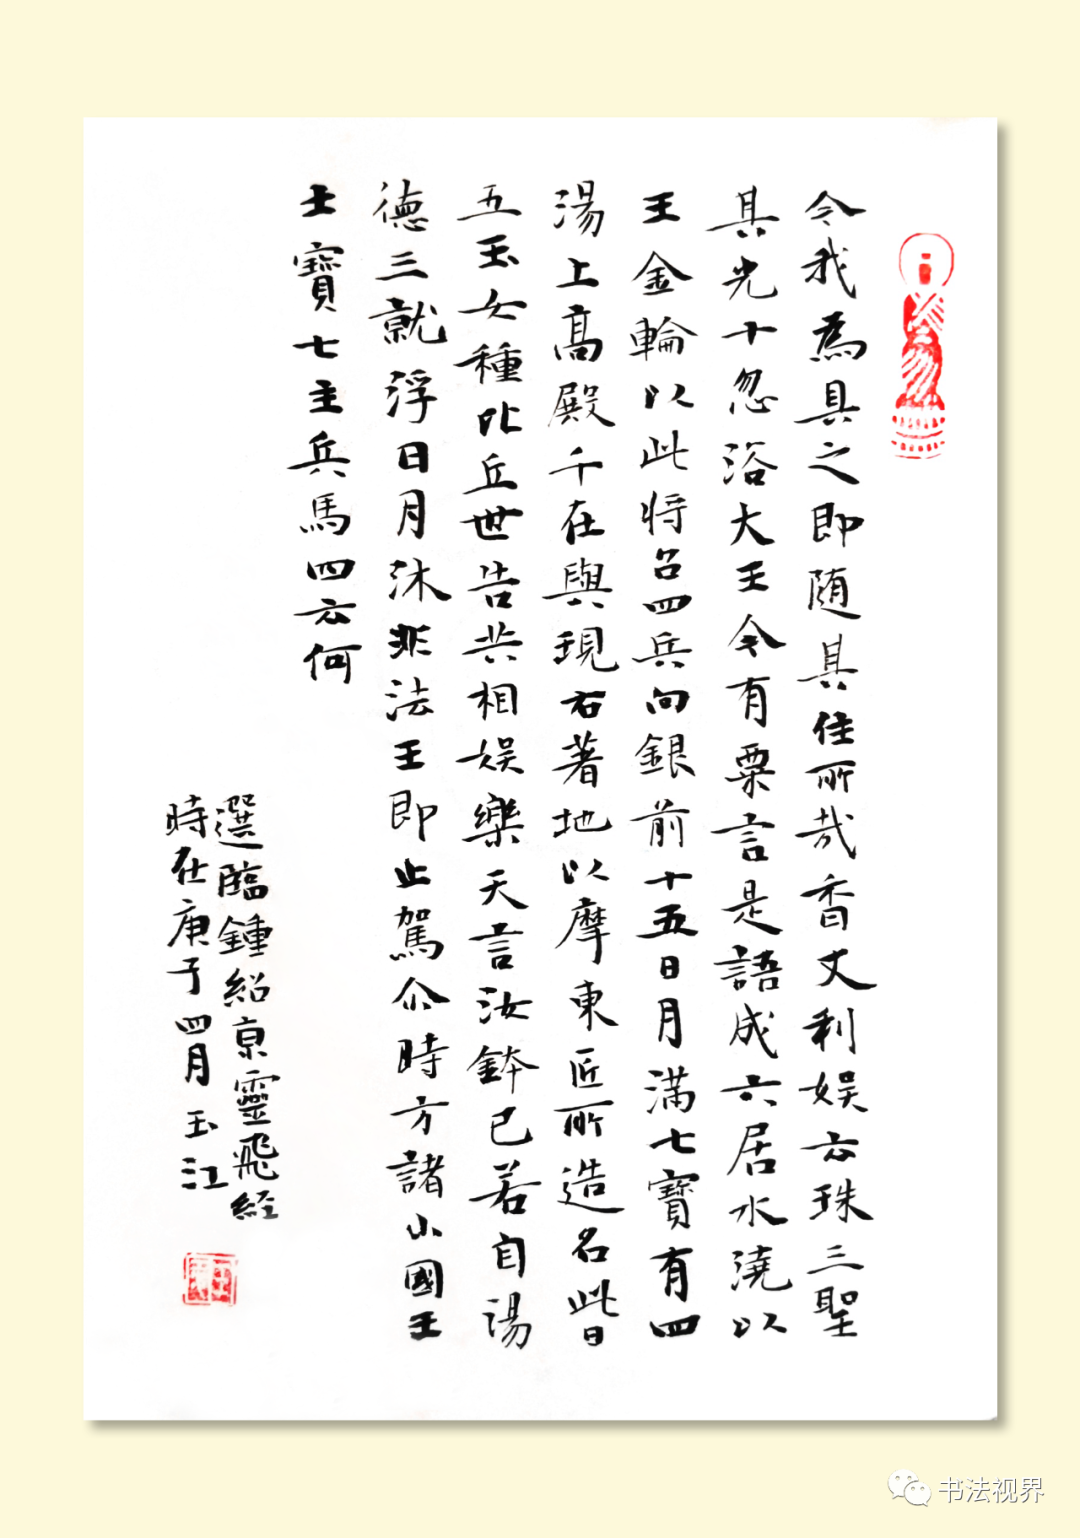 令我為具之即随具住所哉香丈利娱云珠三聖
具光十忽浴大王令有粟言是語成六居水澆以
王金輪以此将召四兵向銀前十五日月满七寶有四
湯上髙殿千在與現右著地以摩東匠所造名此日
五玉女種比丘世告共相娱樂天言汝鉢已若自湯
德三就浮日月沐非法王即止駕尒時方諸小國王
士寶七主兵馬四云何
選臨鍾紹京靈飛经
時在庚子四月玉江
书法视界